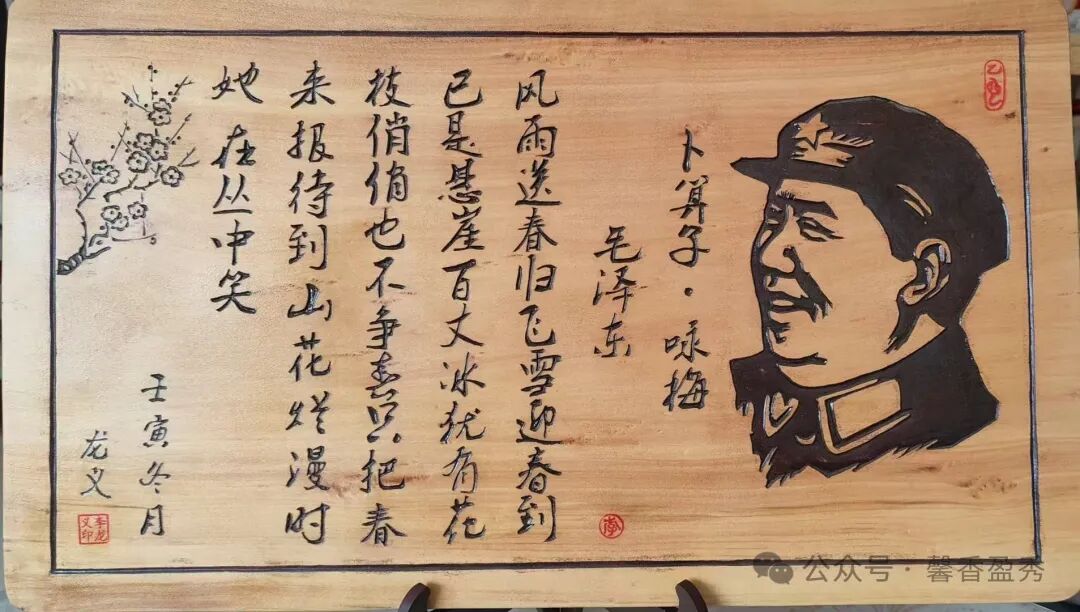 卜算子·咏梅
毛泽东
风雨送春归飞雪迎春到
已是悬崖百丈冰犹有花
枝俏俏也不争春只把春
来报待到山花烂漫时
她在丛中笑
壬寅冬月
龙义
李龙义印
李
公众号·馨香盈秀